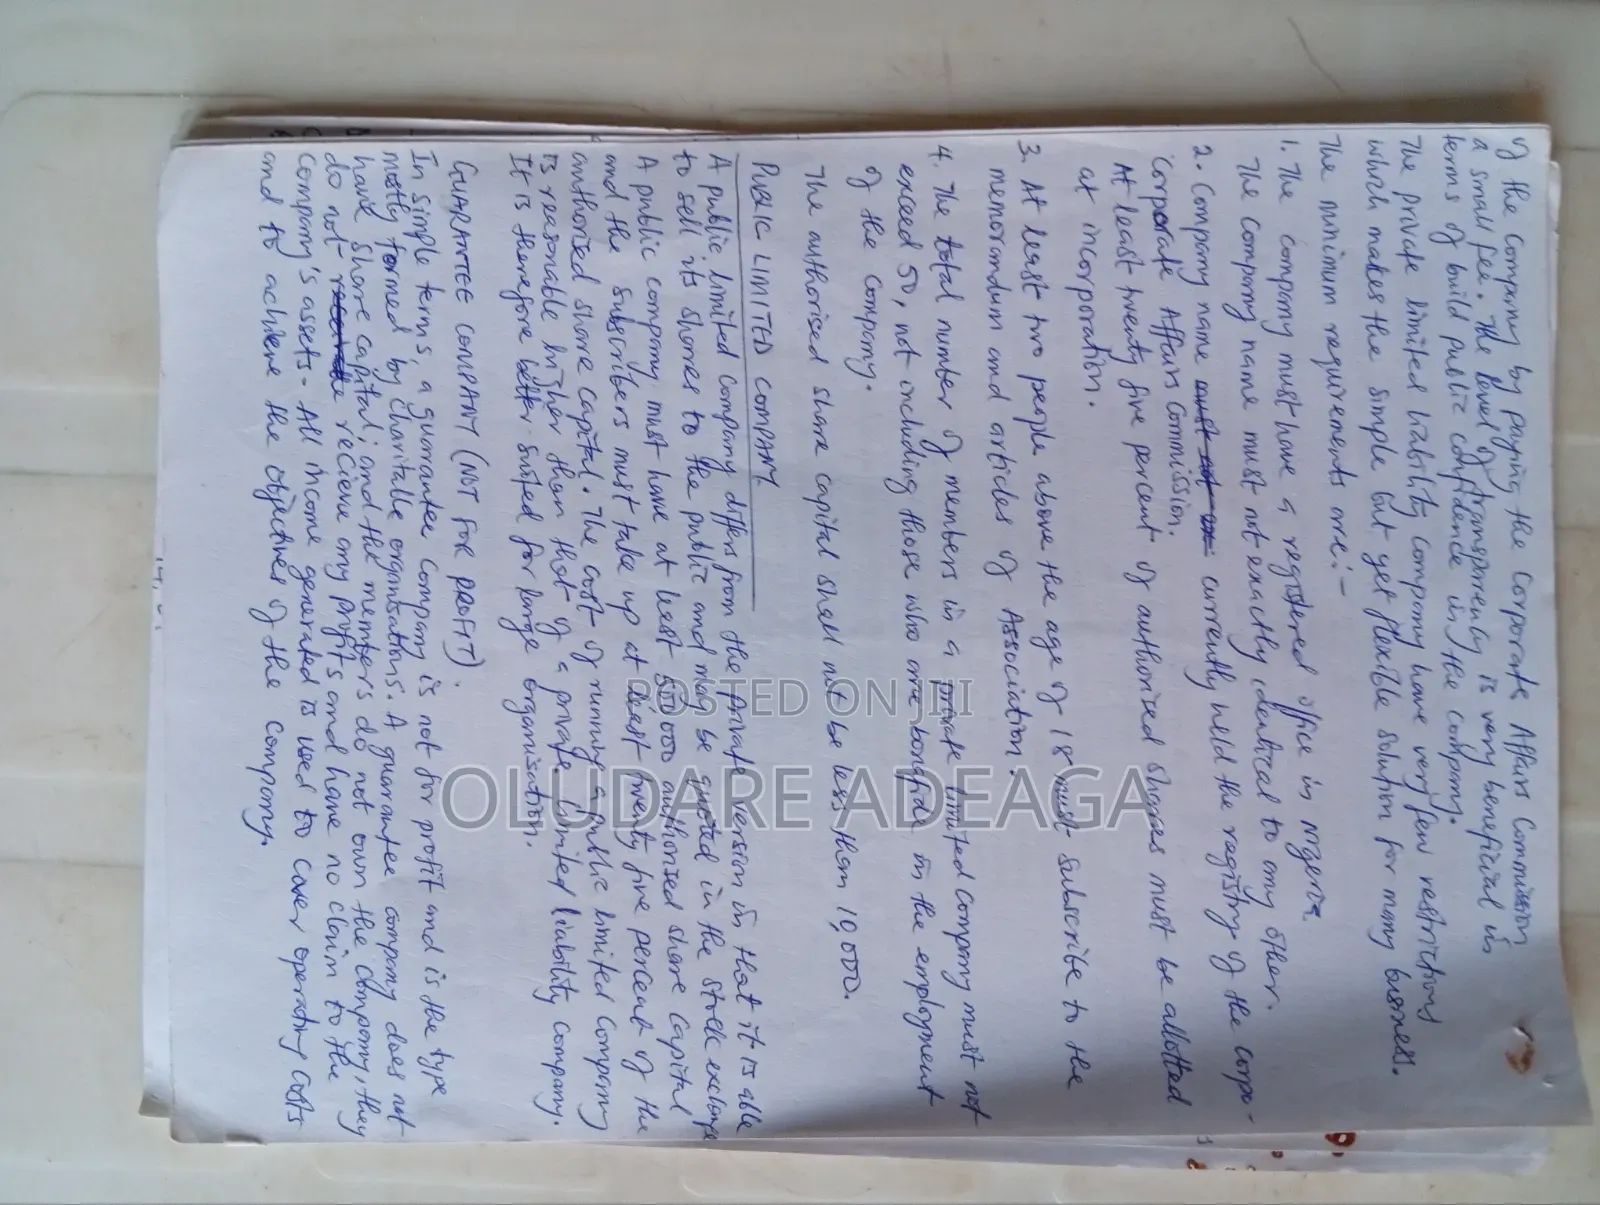 of the company by paying the Corporate Affairs Commission
a small fee. The level of transparency is very beneficial in
terms of build public confidence in the company.
The private limited liability company have very few restrictions
which makes the simple but yet flexible solution for many business.
The minimum requirements are:-
1. The company must have a registered office in nigeria.
The company name must not exactly identical to any other.
2. Company name currently held the registry of the corpo-
Corporate Affairs Commission.
At least twenty five percent of authorised shares must be allotted
at incorporation.
3. At least two people above the age of 18 must subscribe to the
memorandum and articles of Association.
4. The total number of members in a private limited company must not
exceed 50, not including those who are bonafide in the employment
of the company.
The authorised share capital shall not be less than 10,000.
PUBLIC LIMITED COMPANY
A public limited company differs from the private version in that it is able
to sell its shares to the public and may be quoted in the stock exchange
A public company must have at least 500,000 authorised share capital
and the subscribers must take up at least twenty five percent of the
authorised share capital. The cost of running a public limited company
is reasonable higher than that of a private limited liability company.
It is therefore better suited for large organisation.
GUARANTEE COMPANY (NOT FOR PROFIT).
In simple terms, a guarantee company is not for profit and is the type
mostly formed by charitable organisations. A guarantee company does not
have share capital; and the members do not own the company, they
do not recieve any profits and have no claim to the
company's assets. All income generated is used to cover operating costs
and to achieve the objectives of the company.
POSTED ON JIJI
OLUDARE ADEAGA